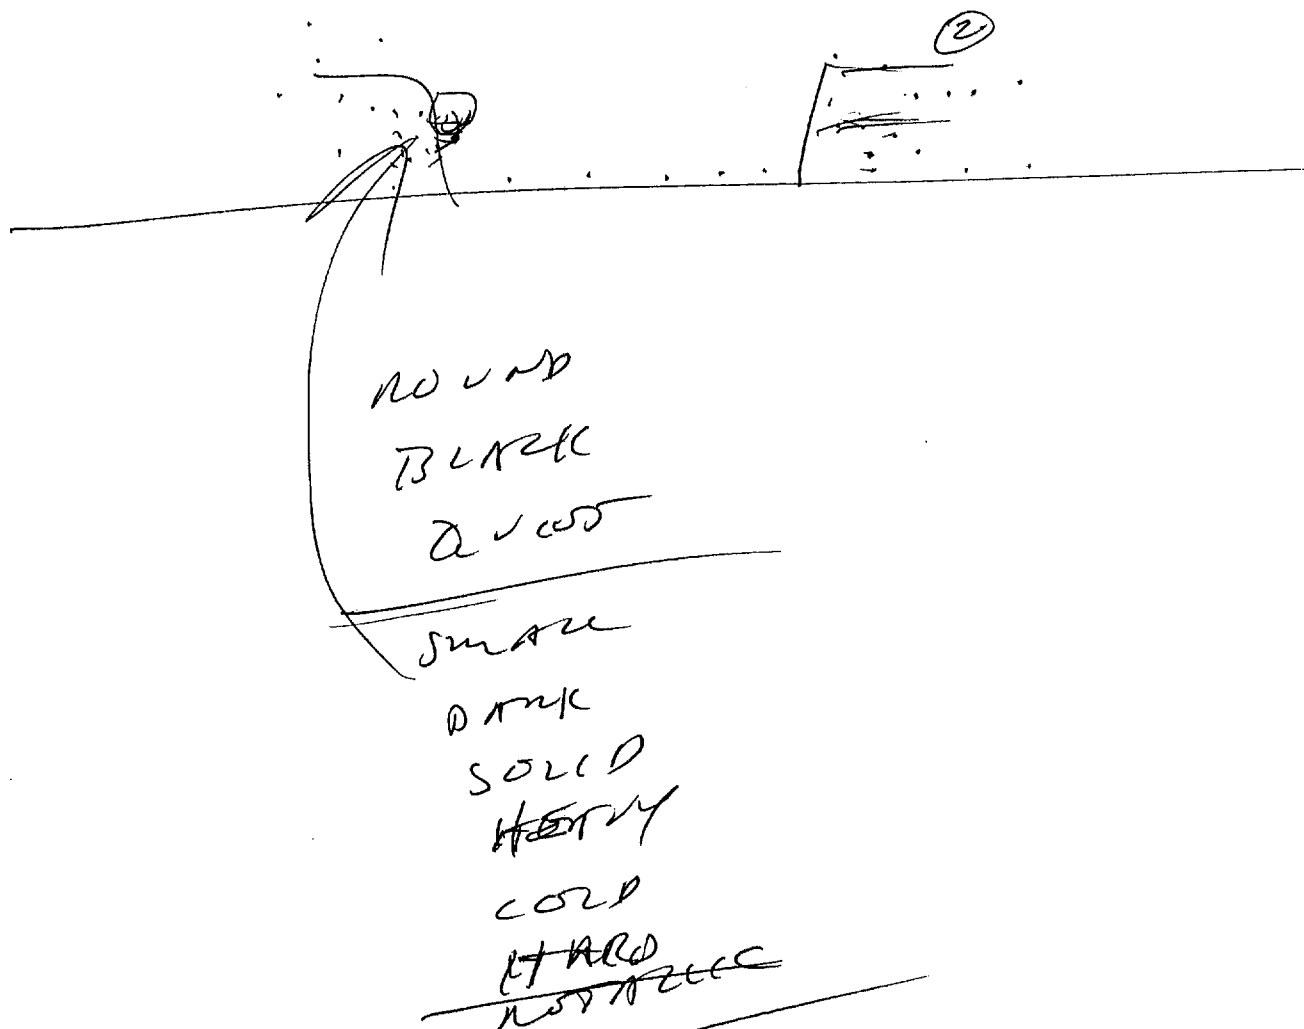 2
ROUND
BLACK
QUIET
SMALL
DARK
SOLID
HEAVY
COLD
HARD
METALLIC